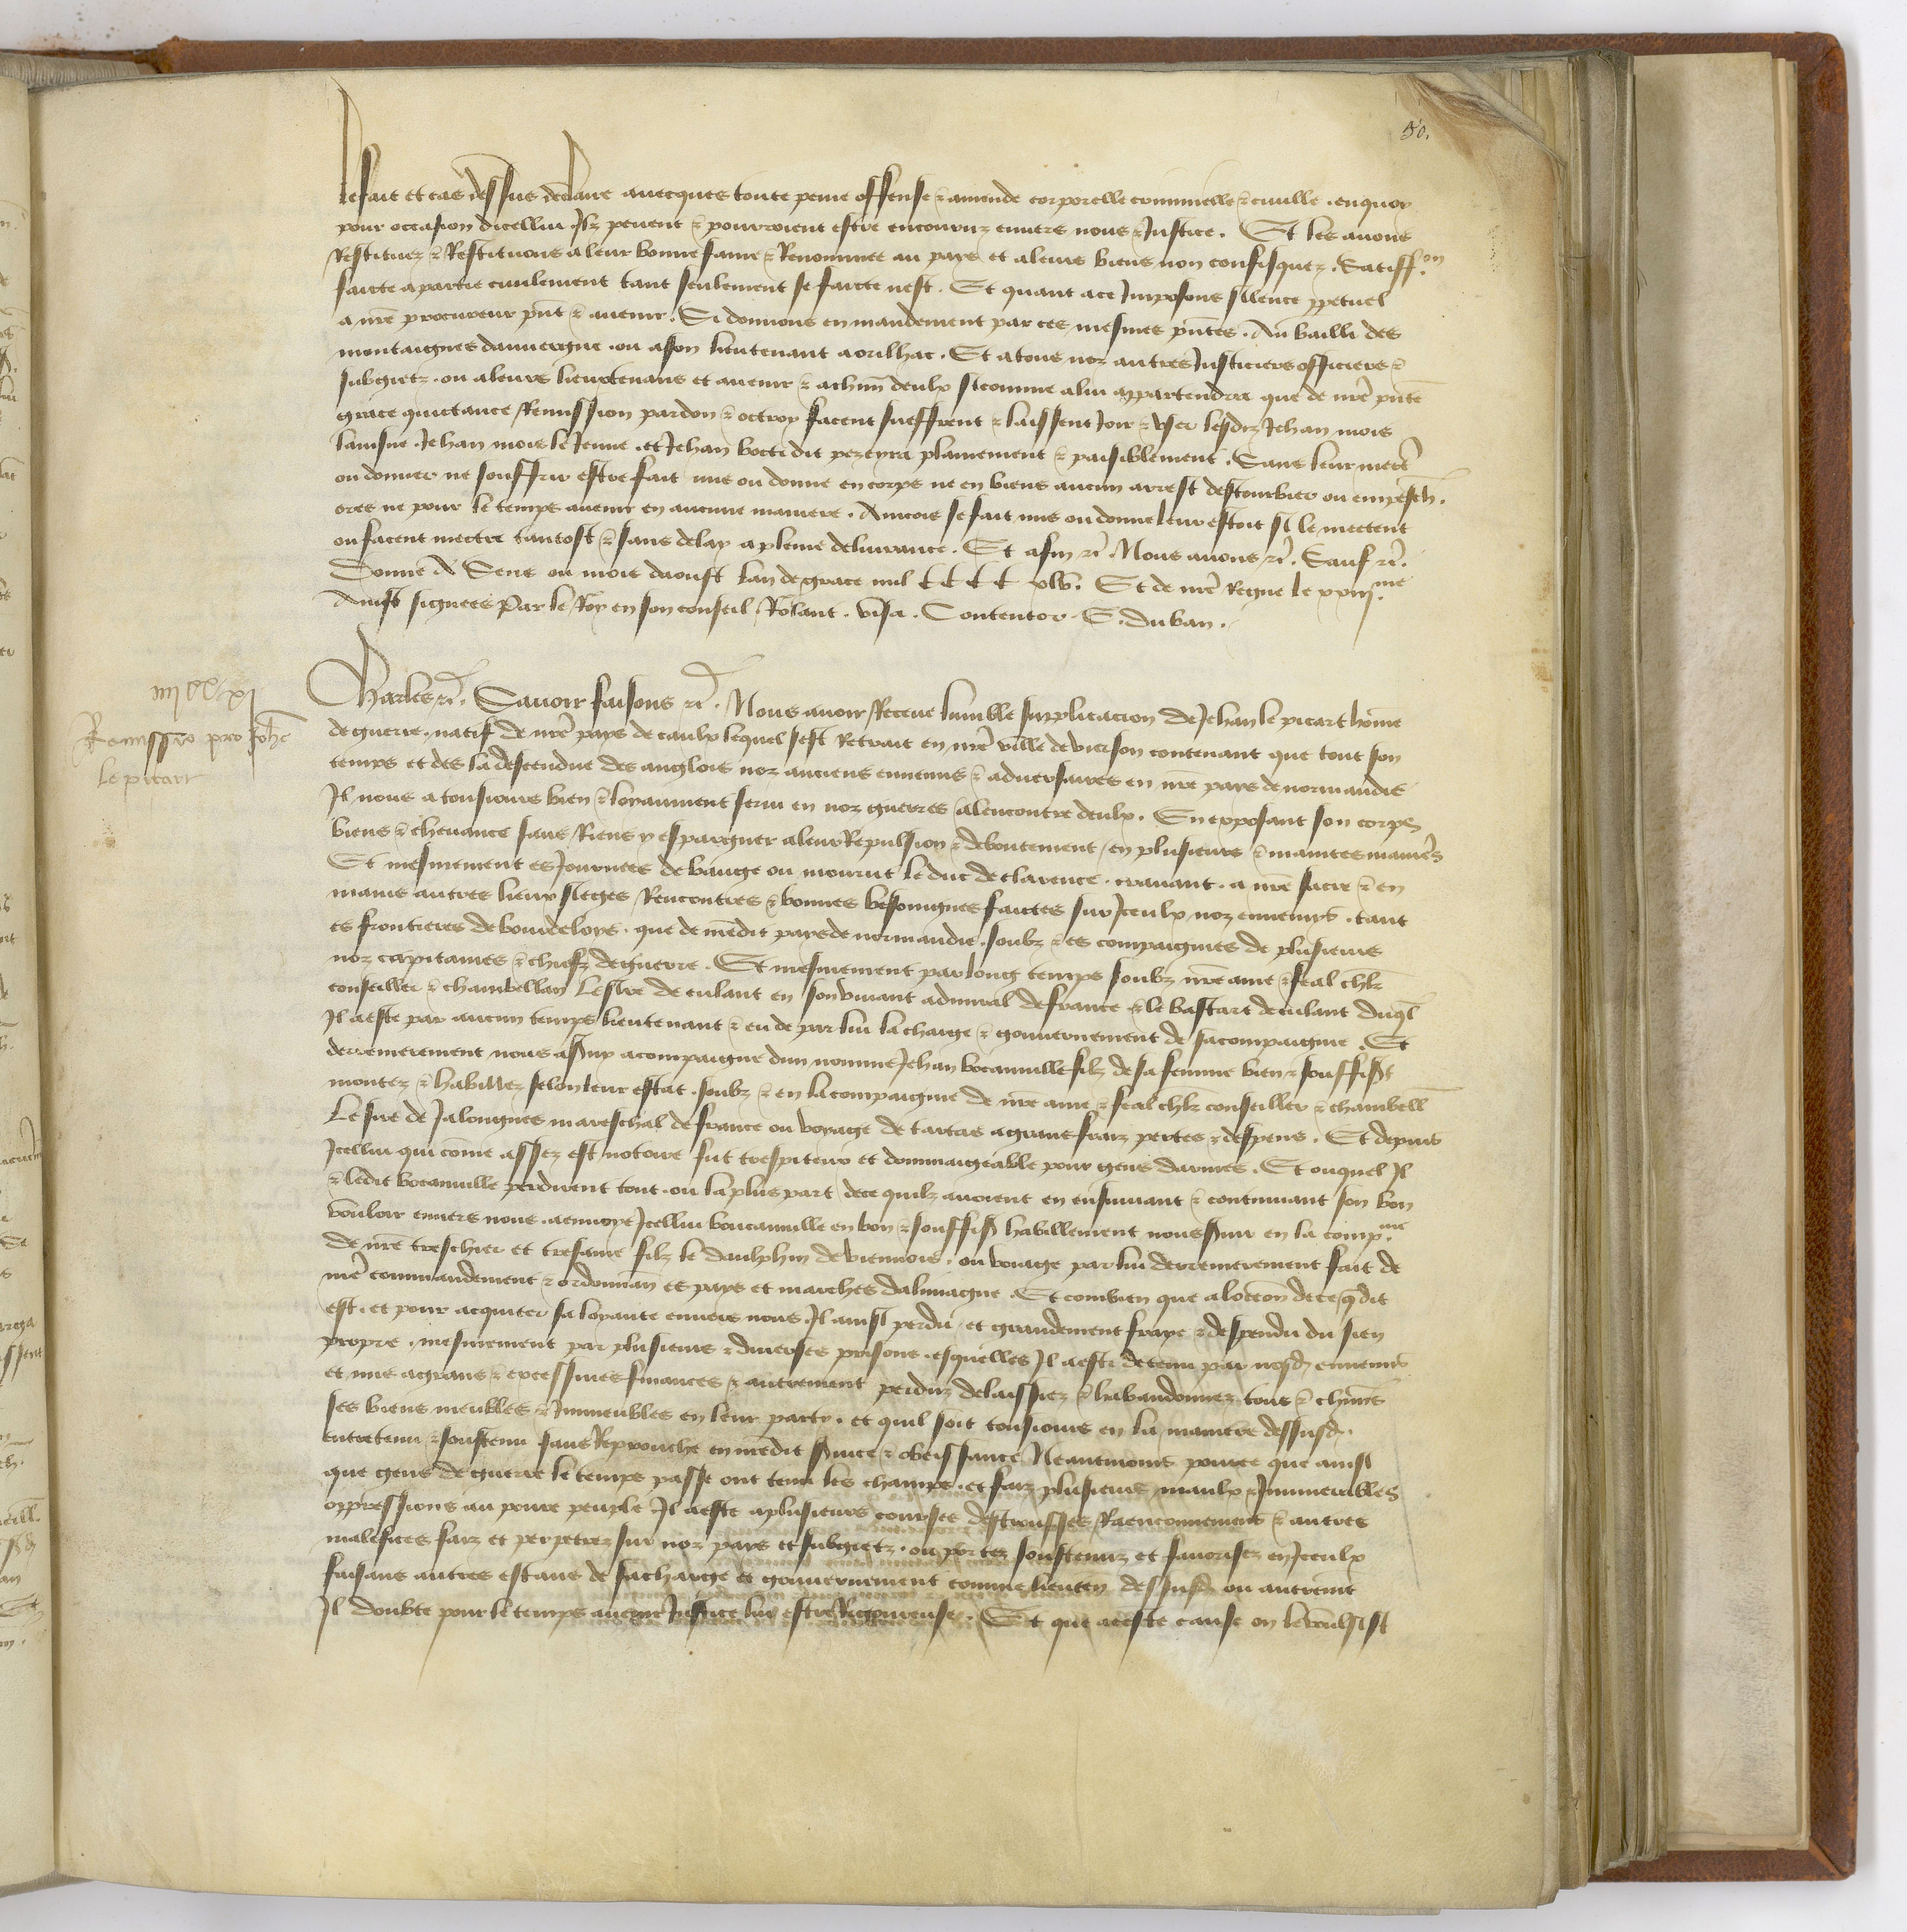 50.
le fait et cas dessus declaire auecques toute peine offense & amende corporelle criminelle & ciuille. en quoy
pour occasion dicellui Ilz peuent & pourroient estre encouruz enuers nous & Justice. Et les auons
Restituez & Restituons a leur bonne fame & Renommee au pays et a leurs biens non confisquez. Satiffon
faicte a partie ciuilement tant seulement se faicte nest. Et quant a ce Imposons silence ppetuel
a nre procureur pnt & auenir. Si donnons en mandement par ces mesmes pntes. Au bailli des
montaignes dauuergne. ou a son lieutenant a orilhac. Et a tous noz autres Justiciers officiers &
subgietz. ou a leurs lieuxtenans et auenir & a chun deulx si comme a lui appartendra que de nre pnte
grace quictance Remission pardon & octroy facent sueffrent & laissent Joir & vser lesdiz Jehan mois
laisne. Jehan mois le Jeune. et Jehan voti dit pezeyra plainement & paisiblement. Sans leur mectre
ou donner ne souffrir estre fait mis ou donne en corps ne en biens aucun arrest destourbier ou empesch.
ores ne pour le temps auenir en aucune maniere. Aincois se fait mis ou donne leur estoit si le mectent
ou facent mectre tantost & sans delay a pleine deliurance. Et afin &c. Nous auons &c. Sauf &c.
Donne A Sens ou mois daoust lan de grace mil CCCC xlv. Et de nre Regne le xxiij.me
Ainsi signees Par le Roy en son conseil Rolant. visa. Contentor. E. du ban.
iiij CC xj
Remissio pro Johe
le picart
Charles &c. Sauoir faisons &c. Nous auoir Receue lumble supplicacion de Jehan le picart homme
de guerre. natif de nre pays de caulx lequel sest Retrait en nre ville de vierson contenant que tout son
temps et des la descendue des anglois noz anciens ennemis & aduersaires en nre pays de normandie
Il nous a tousiours bien & loyaument serui en noz guerres alencontre deulx. En exposant son corps
biens & cheuance sans Riens y espargner a leur Repulsion & deboutement en plusieurs & maintes manieres
Et mesmement es Journees de bauge ou mourut le duc de clarence. crauant. a nre sacre & en
mains autres lieux sieges Rencontres & bonnes besoingnes faictes sur Iceulx noz ennemis. tant
es frontieres de bourdeloys. que de nredit pays de normandie. soubz & es compaignies de plusieurs
noz cappitaines & chiefz de guerre. Et mesmement par long temps soubz nre ame & feal chlr
conseiller & chambellan Le sire de culant en son viuant admiral de france & le bastart de culant duql
Il a este par aucun temps lieutenant & eu de par lui la charge & gouuernement de sa compaignie. Et
derrenierement nous a seruy acompaigne dun nomme Jehan bocauuille filz de sa femme bien & souffist
montez & habillez selon leur estat. soubz & en la compaignie de nre ame & feal chlr conseiller & chambell
Le sire de Jalongnes mareschal de france ou voyage de tartas a grans fraiz pertes & despens. Et depuis
Icellui qui comme assez est notoire fut trespiteux et dommaigeable pour gens darmes. Et ouquel Il
& ledit bocauuille perdirent tout. ou la plus part de ce quilz auoient en ensuiuant & continuant son bon
vouloir enuers nous. a enuoye Icellui boucauuille en bon & souffist habillement nous seruir en la comp.nie
de nre treschier et tresame filz le daulphin de viennois. ou voiage par lui derrenierement fait de
nre commandement & ordonnan es pays et marches dalmaigne. Et combien que a loccon de ce que dit
est. et pour acquiter sa loyaute enuers nous Il ainsi perdu et grandement fraye & despendu du sien
propre. mesmement par plusieurs & diuerses prisons. esquelles Il a este detenu par nosd ennemis
et mis a grans & excessiues finances & autrement perduz delaissiez & habandonnez tous & chuns
ses biens meubles & Immeubles en leur party. et quil soit tousiours en la maniere dessusd.
entretenu & soustenu sans Reprouche en nredit seruice & obeissance Neantmoins pource que ainsi
que gens de guerre le temps passe ont tenu les champs. et faiz plusieurs maulx & Innumerables
oppressions au poure peuple Il a este a plusieurs courses destrousses Raenconnemens & autres
malefices faiz et perpetrez sur noz pays et subgietz. ou portez soustenuz et fauorisez en Iceulx
faisans autres estans de sa charge et gouuernement comme lieuten dessusd ou autremt
Il doubte pour le temps auenir Justice lui estre Rigoureuse. Et que a ceste cause on le voulsist